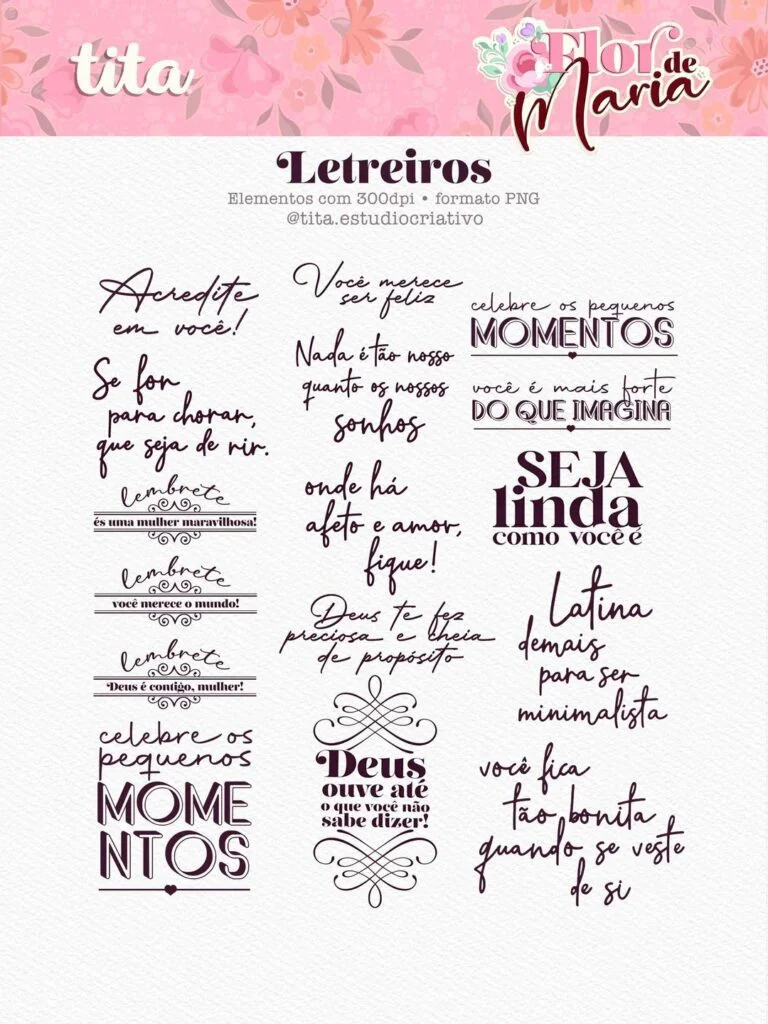 tita
Flor de
Maria
Letreiros
Elementos com 300dpi • formato PNG
@tita.estudiocriativo
Acredite
em você!
Se for
para chorar,
que seja de rir.
lembrete
és uma mulher maravilhosa!
lembrete
você merece o mundo!
lembrete
Deus é contigo, mulher!
celebre os
pequenos
MOME
NTOS
Você merece
ser feliz
Nada é tão nosso
quanto os nossos
sonhos
onde há
afeto e amor,
fique!
Deus te fez
preciosa e cheia
de propósito
Deus
ouve até
o que você não
sabe dizer!
celebre os pequenos
MOMENTOS
você é mais forte
DO QUE IMAGINA
SEJA
linda
como você é
Latina
demais
para ser
minimalista
você fica
tão bonita
quando se veste
de si